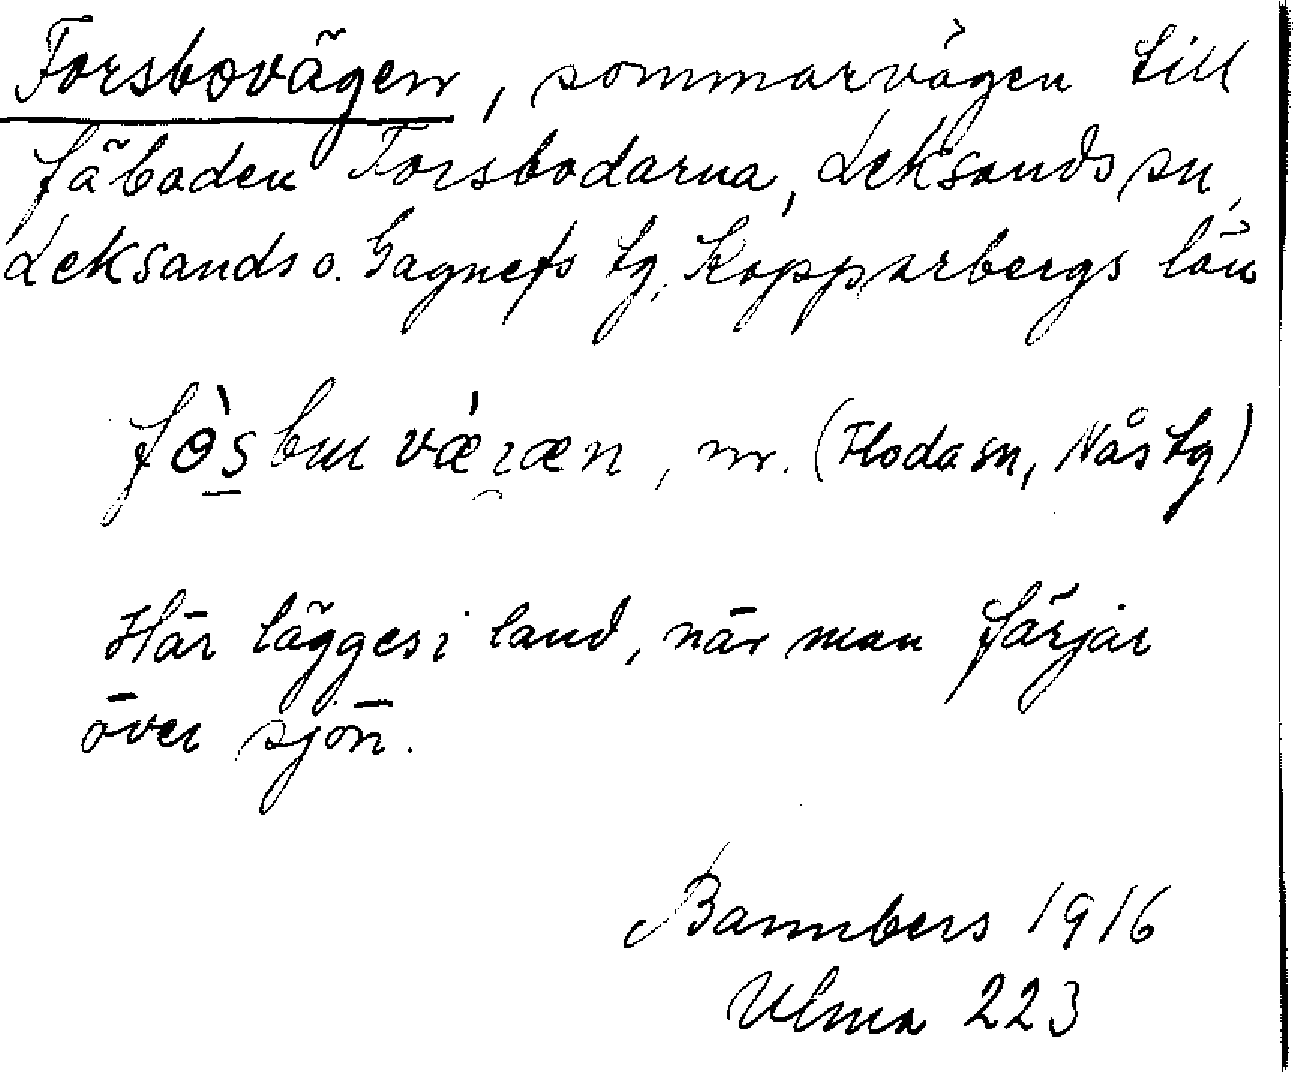 Forsbovägen, sommarvägen till
fäboden Forsbodarna, Leksands sn,
Leksands o. Gagnefs tg, Kopparbergs län
m. (Floda sn, Nås tg)
Här lägges i land, när man färjar
över sjön.
Bannbers 1916
Ulma 223